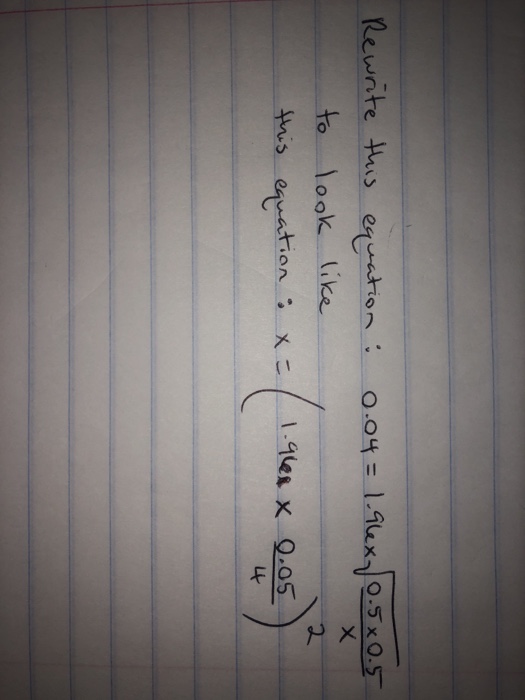 Rewrite this equation : 0.04 = 1.96 x √(0.5 x 0.5 / x)
to look like
this equation : x = (1.96 x 0.05 / 4)²